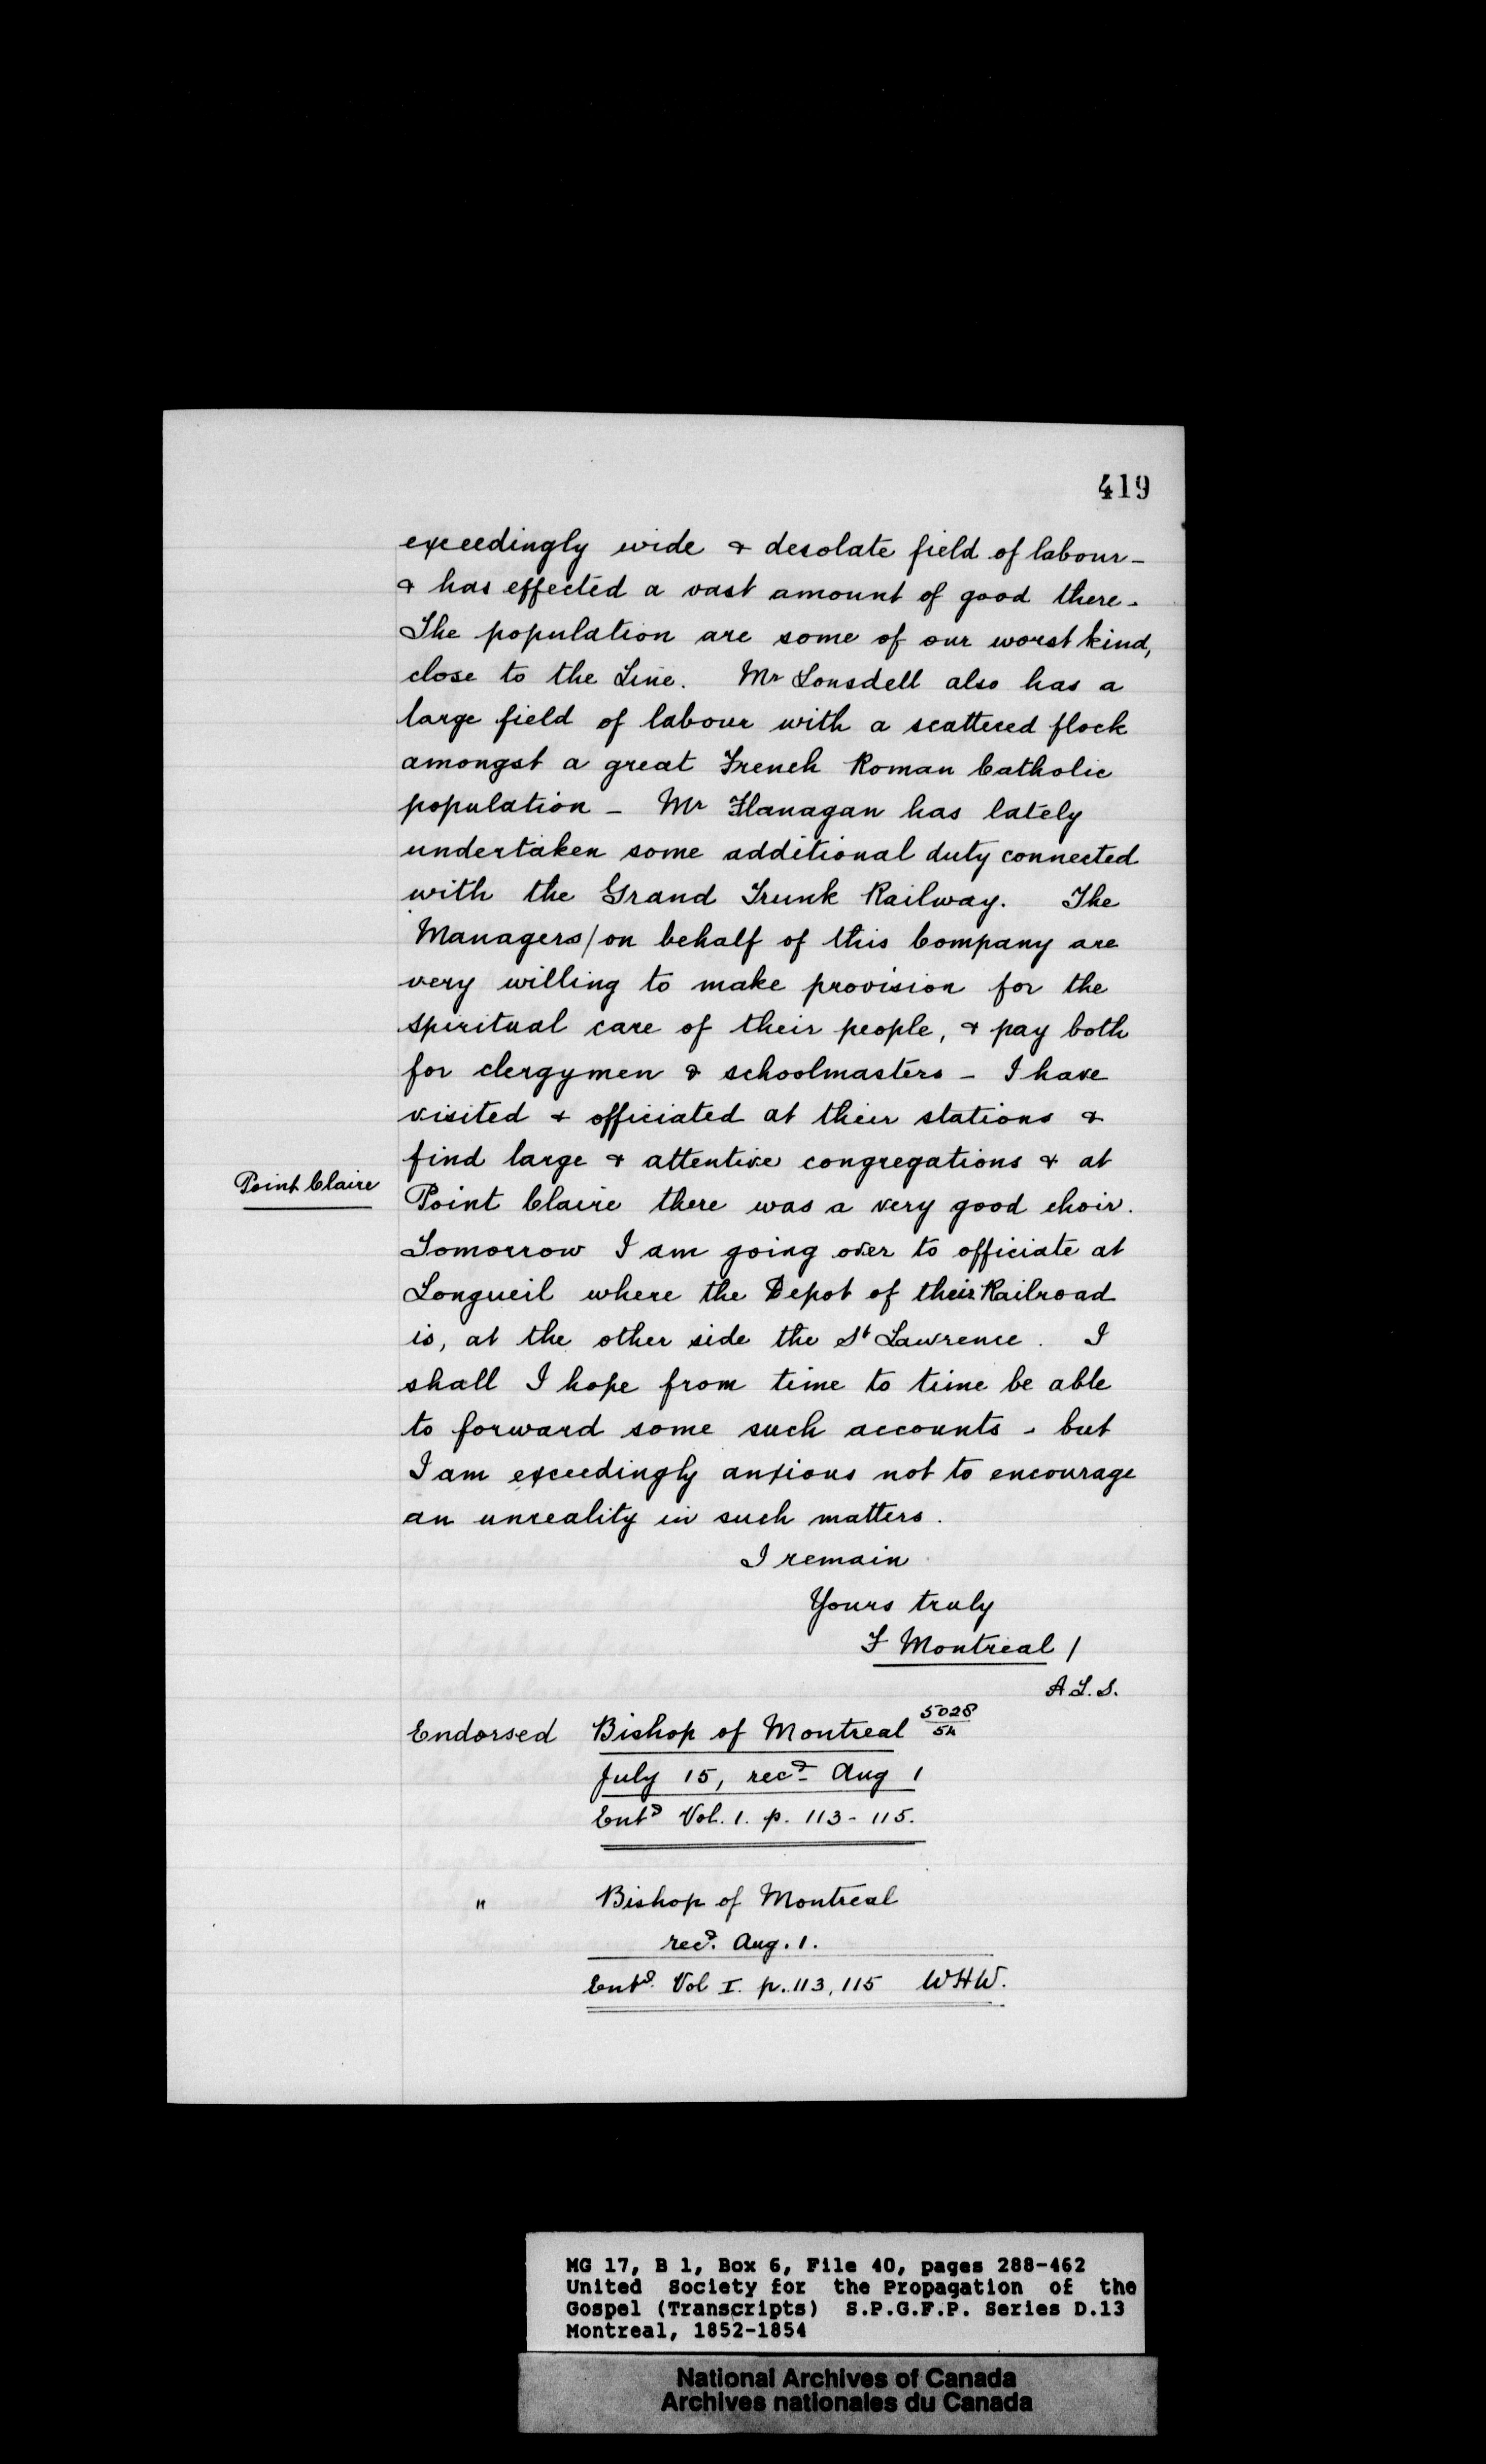 419
exceedingly wide & desolate field of labour -
& has effected a vast amount of good there -
The population are some of our worst kind,
close to the Line. Mr Lonsdell also has a
large field of labour with a scattered flock
amongst a great French Roman Catholic
population - Mr Flanagan has lately
undertaken some additional duty connected
with the Grand Trunk Railway. The
Managers/on behalf of this Company are
very willing to make provision for the
spiritual care of their people, & pay both
for clergymen & schoolmasters - I have
visited & officiated at their stations &
find large & attentive congregations & at
Point Claire
Point Claire there was a very good choir.
Tomorrow I am going over to officiate at
Longueil where the Depot of their Railroad
is, at the other side the St Lawrence. I
shall I hope from time to time be able
to forward some such accounts - but
I am exceedingly anxious not to encourage
an unreality in such matters.
I remain
Yours truly
F Montreal /
A.L.S.
Endorsed Bishop of Montreal 5028/54
July 15, recd Aug 1
Entd Vol. 1. p. 113 - 115.
" Bishop of Montreal
recd. Aug. 1.
Entd. Vol I. p. 113, 115 WHW.
MG 17, B 1, Box 6, File 40, pages 288-462
United Society for the Propagation of the
Gospel (Transcripts) S.P.G.F.P. Series D.13
Montreal, 1852-1854
National Archives of Canada
Archives nationales du Canada